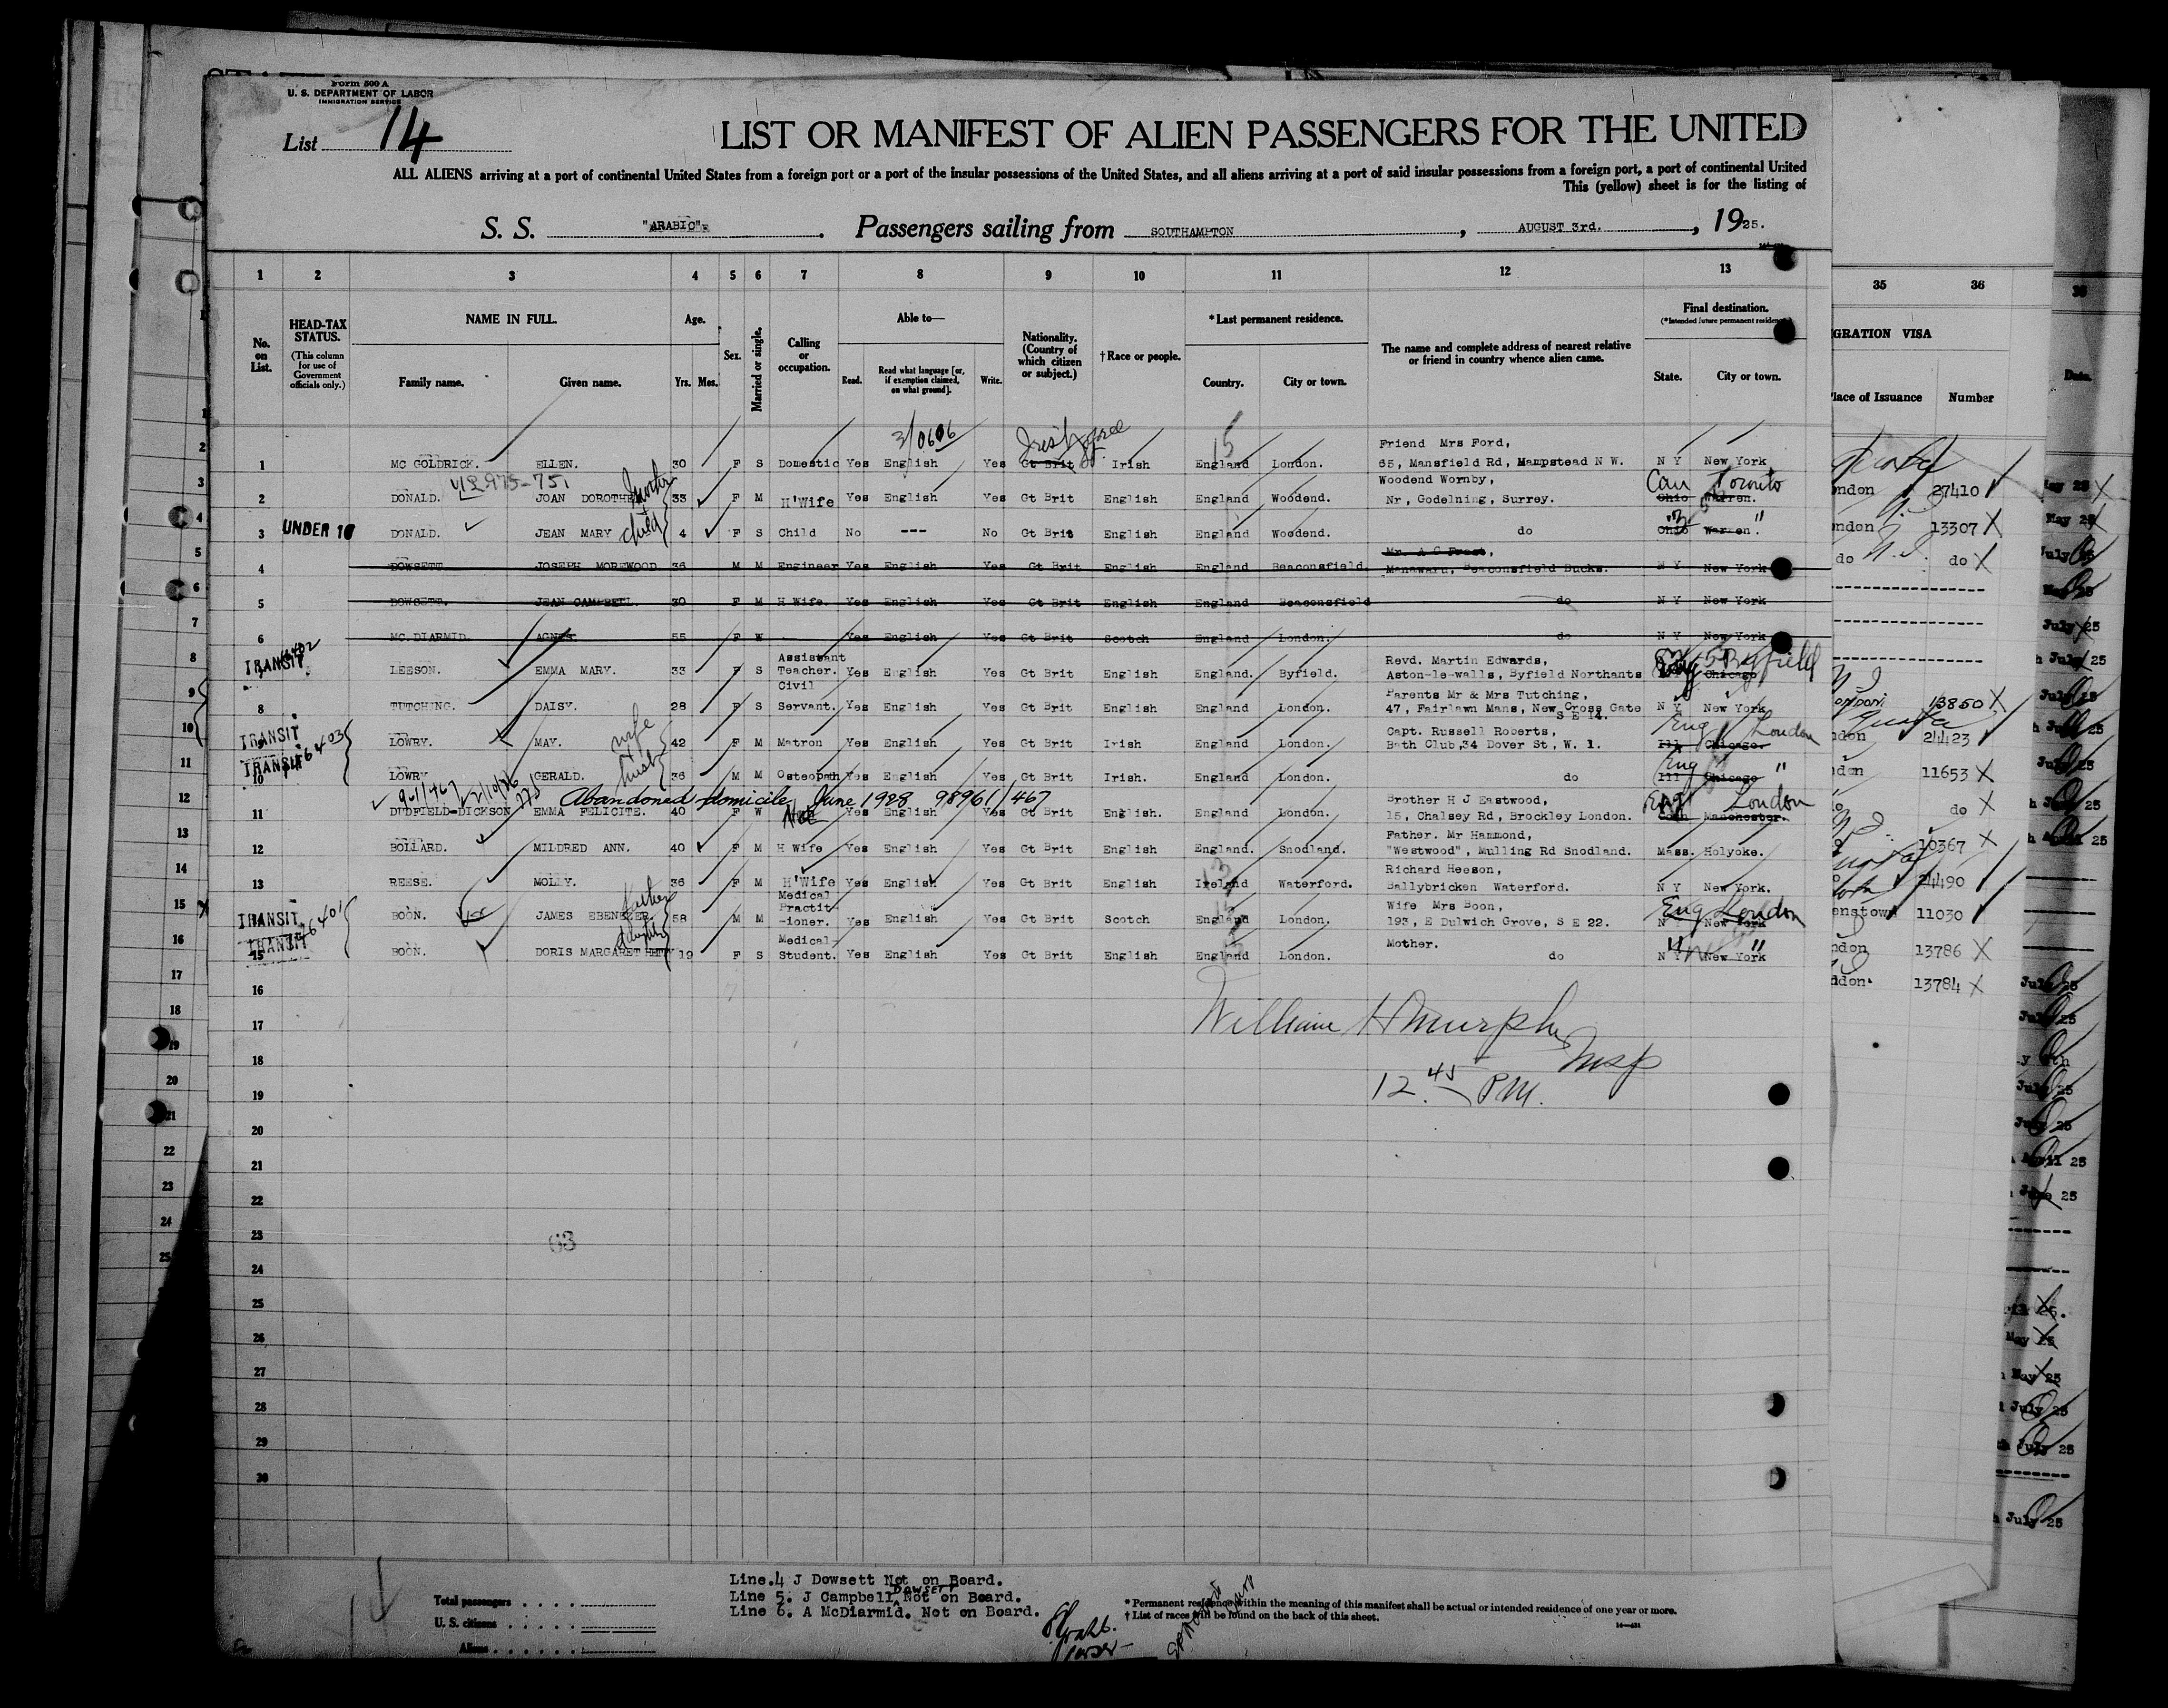 Form 500 A
U. S. DEPARTMENT OF LABOR
IMMIGRATION SERVICE
List 14
LIST OR MANIFEST OF ALIEN PASSENGERS FOR THE UNITED
ALL ALIENS arriving at a port of continental United States from a foreign port or a port of the insular possessions of the United States, and all aliens arriving at a port of said insular possessions from a foreign port, a port of continental United
This (yellow) sheet is for the listing of
S. S. "ARABIC" . Passengers sailing from SOUTHAMPTON , AUGUST 3rd. , 1925.
1 2 3 4 5 6 7 8 9 10 11 12 13 35 36
No. on List.
HEAD-TAX STATUS.
(This column for use of Government officials only.)
NAME IN FULL.
Family name. Given name.
Age.
Yrs. Mos.
Sex.
Married or single.
Calling or occupation.
Able to—
Read. Read what language [or, if exemption claimed, on what ground]. Write.
Nationality. (Country of which citizen or subject.)
†Race or people.
*Last permanent residence.
Country. City or town.
The name and complete address of nearest relative or friend in country whence alien came.
Final destination.
(*Intended future permanent residence)
State. City or town.
GRATION VISA
Place of Issuance Number
Date.
Friend Mrs Ford,
1 MC GOLDRICK. ELLEN. 30 F S Domestic Yes English Yes Gt Brit Irish England London. 65, Mansfield Rd, Hampstead N W. N Y New York
Irish Free St.
Woodend Wornby,
2 DONALD. JOAN DOROTHEA 33 F M H'Wife Yes English Yes Gt Brit English England Woodend. Nr, Godelning, Surrey. Ohio Warren.
Mother Can Toronto
3 UNDER 16 DONALD. JEAN MARY child 4 F S Child No --- No Gt Brit English England Woodend. do Ohio Warren. "
Mr. A C Frost,
4 DOWSETT JOSEPH MOREWOOD 36 M M Engineer Yes English Yes Gt Brit English England Beaconsfield. Beaconsfield Bucks. N Y New York
5 DOWSETT. JEAN CAMPBELL. 30 F M H Wife. Yes English Yes Gt Brit English England Beaconsfield do N Y New York
6 MC.DIARMID. AGNES. 55 F W Yes English Yes Gt Brit Scotch England London. do N Y New York
TRANSIT LEESON. EMMA MARY. 33 F S Assistant Teacher. Yes English Yes Gt Brit English England. Byfield. Revd. Martin Edwards, Aston-le-walls, Byfield Northants Chicago Byfield
8 TUTCHING. DAISY. 28 F S Civil Servant. Yes English Yes Gt Brit English England London. Parents Mr & Mrs Tutching, 47, Fairlawn Mans, New Cross Gate S E 14. N Y New York
TRANSIT LOWRY. MAY. wife 42 F M Matron Yes English Yes Gt Brit Irish England London. Capt. Russell Roberts, Bath Club,34 Dover St, W. 1. Ill Chicago. Eng London
TRANSIT 10 LOWRY GERALD. 36 M M Osteopath Yes English Yes Gt Brit Irish. England London. do Ill Chicago Eng "
Abandoned domicile June 1928 98961/467
11 DUDFIELD-DICKSON EMMA FELICITE. 40 F W Yes English Yes Gt Brit English. England London. Brother H J Eastwood, 15, Chalsey Rd, Brockley London. Manchester. Eng London
12 BOLLARD. MILDRED ANN. 40 F M H Wife Yes English Yes Gt Brit English England. Snodland. Father. Mr Hammond, "Westwood", Mulling Rd Snodland. Mass. Holyoke.
13 REESE. MOLLY. 36 F M H'Wife Yes English Yes Gt Brit English Ireland Waterford. Richard Heeson, Ballybricken Waterford. N Y New York.
TRANSIT BOON. JAMES EBENEZER father 58 M M Medical Practit-ioner. Yes English Yes Gt Brit Scotch England London. Wife Mrs Boon, 193, E Dulwich Grove, S E 22. N Y New York Eng London
TRANSIT 15 BOON. DORIS MARGARET HETTY daughter 19 F S Medical Student. Yes English Yes Gt Brit English England London. Mother. do N Y New York " "
16
17
18
19
20
21
22
23
24
25
26
27
28
29
30
William H Murphy
Insp
12.45 P.M.
63
27410
13307
do
13850
24423
11653
do
10367
24490
11030
13786
13784
Line.4 J Dowsett Not on Board.
Line 5. J Campbell DOWSETT Not on Board.
Line 6. A McDiarmid. Not on Board.
Total passengers
U. S. citizens
Aliens
* Permanent residence within the meaning of this manifest shall be actual or intended residence of one year or more.
† List of races will be found on the back of this sheet.